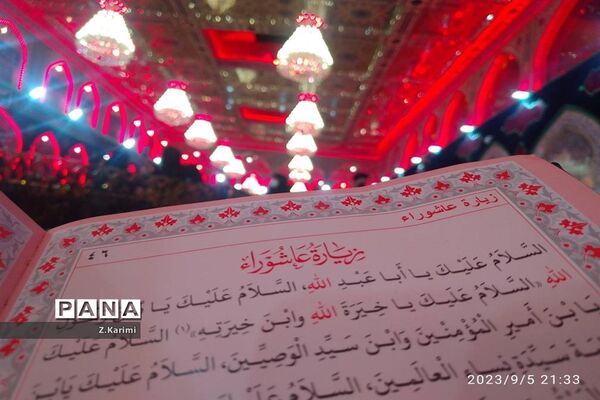 زيارة عاشوراء
٤٦
زيارَةُ عَاشُوْرَاء
السَّلَامُ عَلَيْكَ يا أَبا عَبْدِ اللهِ، السَّلَامُ عَلَيْكَ يَا
اللهِ «السَّلَامُ عَلَيْكَ يا خِيَرَةَ اللهِ وابْنَ خِيَرَتِهِ»(١) السَّلَامُ عَلَيْكَ
بْنَ أَمِيرِ الْمُؤْمِنِينَ وَابْنَ سَيِّدِ الْوَصِيِّينَ، السَّلَامُ عَلَيْكَ
سَيِّدَةِ نِساءِ الْعالَمِينَ، السَّلَامُ عَلَيْكَ
PANA
Z.Karimi
2023/9/5 21:33